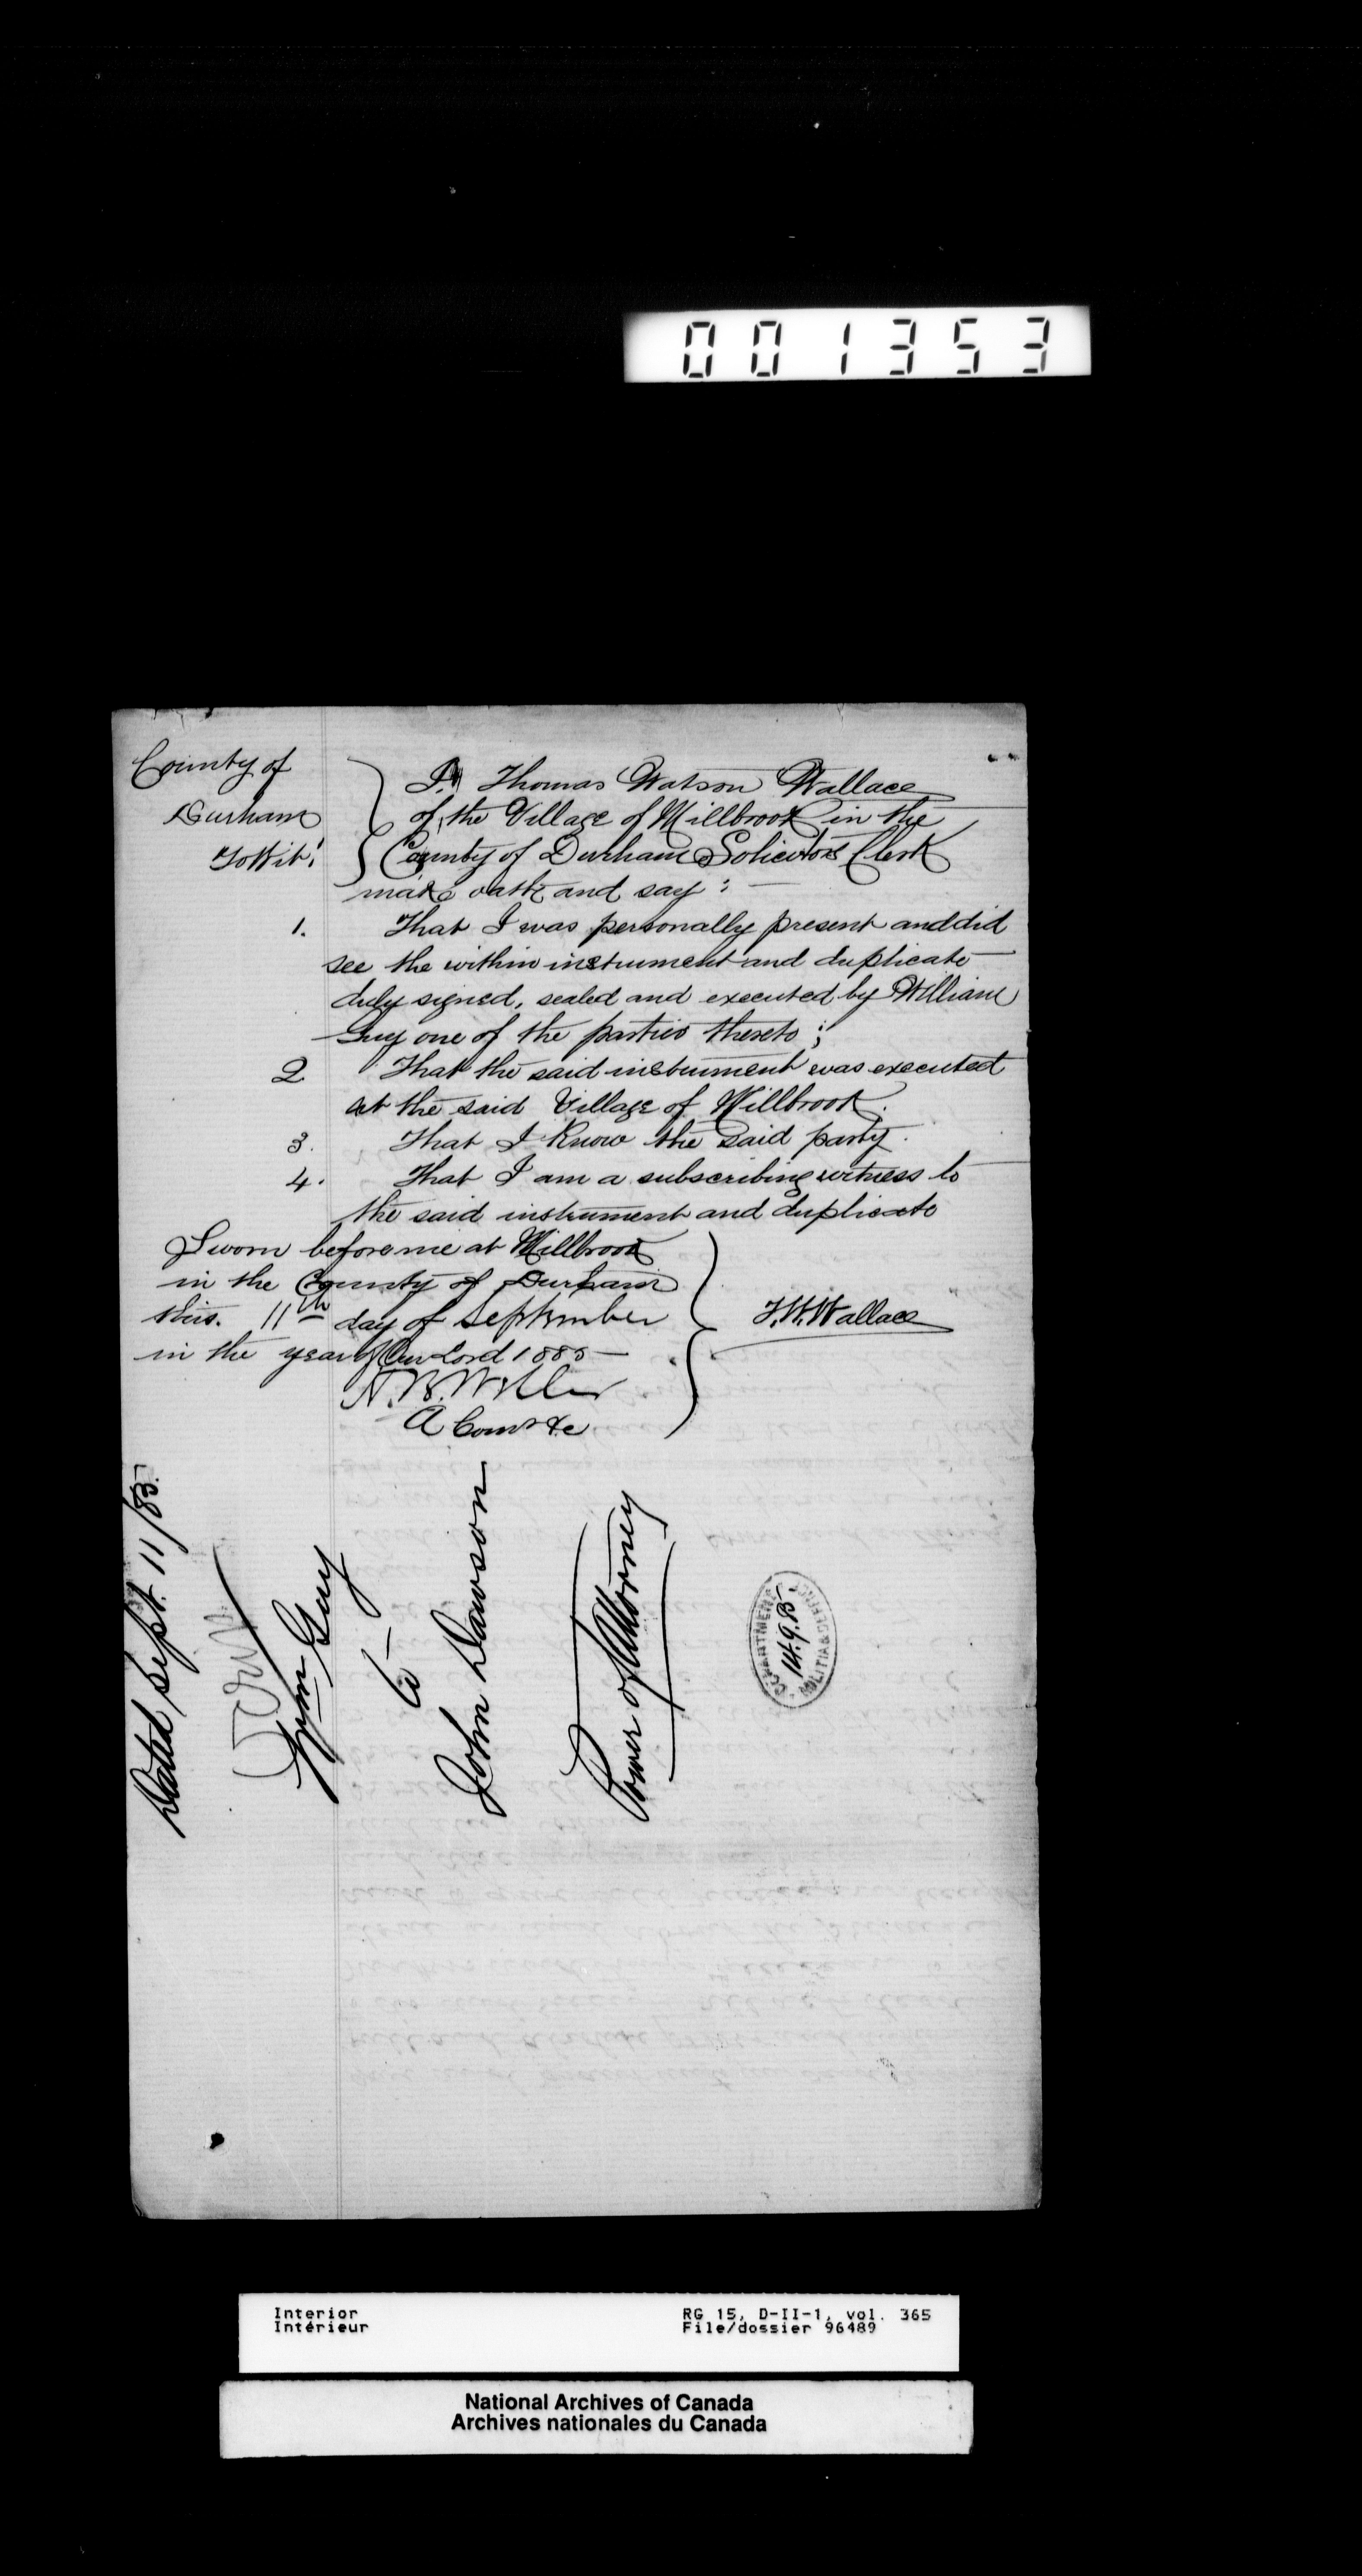 001353
County of
Durham
To Wit:
I, Thomas Watson Wallace
of the Village of Millbrook in the
County of Durham Solicitors Clerk
make oath and say:
1. That I was personally present and did
see the within instrument and duplicate
duly signed, sealed and executed by William
Guy one of the parties thereto;
2 That the said instrument was executed
at the said Village of Millbrook.
3. That I Know the said party.
4. That I am a subscribing witness to
the said instrument and duplicate
Sworn before me at Millbrook
in the County of Durham
this. 11th day of September
in the year of Our Lord 1885
T.W.Wallace
A Comr &c
Dated Sept. 11/85.
Wm Guy
to
John Dawson
Power of Attorney
DEPARTMENT
14.9.85
MILITIA & DEFENCE
Interior
Intérieur
RG 15, D-II-1, vol. 365
File/dossier 96489
National Archives of Canada
Archives nationales du Canada